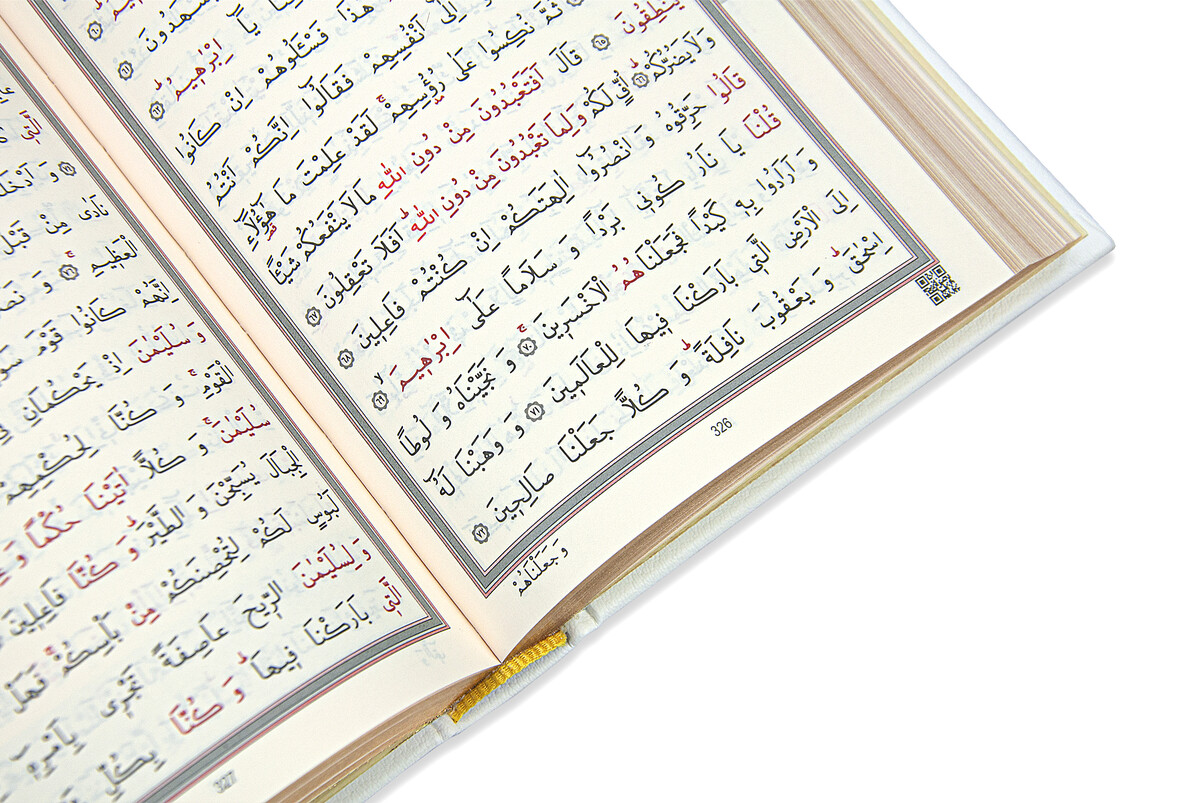 ٦٠
يَشْهَدُونَ ٦١
يَٓا اِبْرٰه۪يمُ ٦٢
هٰذَا فَسْـَٔلُوهُمْ اِنْ كَانُوا
اِلٰٓى اَنْفُسِهِمْ فَقَالُٓوا اِنَّكُمْ اَنْتُمُ
ثُمَّ نُكِسُوا عَلٰى رُؤُ۫سِهِمْۚ لَقَدْ عَلِمْتَ مَا هٰٓؤُلَٓاءِ
يَنْطِقُونَ ٦٥ قَالَ اَفَتَعْبُدُونَ مِنْ دُونِ اللّٰهِ مَا لَا يَنْفَعُكُمْ شَيْـًٔا
وَلَا يَضُرُّكُمْۜ ٦٦ اُفٍّ لَكُمْ وَلِمَا تَعْبُدُونَ مِنْ دُونِ اللّٰهِۜ اَفَلَا تَعْقِلُونَ ٦٧
قَالُوا حَرِّقُوهُ وَ انْصُرُٓوا اٰلِهَتَكُمْ اِنْ كُنْتُمْ فَاعِل۪ينَ ٦٨
قُلْنَا يَا نَارُ كُون۪ي بَرْدًا وَ سَلَامًا عَلٰٓى اِبْرٰه۪يمَۙ ٦٩
وَ اَرَادُوا بِه۪ كَيْدًا فَجَعَلْنَاهُمُ الْاَخْسَر۪ينَۚ ٧٠ وَ نَجَّيْنَاهُ وَ لُوطًا
اِلَى الْاَرْضِ الَّت۪ي بَارَكْنَا ف۪يهَا لِلْعَالَم۪ينَ ٧١ وَ وَهَبْنَا لَهُٓ
اِسْحٰقَۜ وَ يَعْقُوبَ نَافِلَةًۜ وَ كُلًّا جَعَلْنَا صَالِح۪ينَ ٧٢
وَ جَعَلْنَاهُمْ
326
الَّت۪ي
وَ اَدْخَلْ
نَادٰى مِنْ قَبْلُ
الْعَظ۪يمِۚ ٧٦ وَ نَصَ
اِنَّهُمْ كَانُوا قَوْمَ سَوْ
وَ سُلَيْمٰنَ اِذْ يَحْكُمَانِ
الْقَوْمِۚ وَ كُنَّا لِحُكْمِهِمْ
سُلَيْمٰنَۚ وَ كُلًّا اٰتَيْنَا حُكْمًا وَ
الْجِبَالَ يُسَبِّحْنَ وَ الطَّيْرَۜ وَ كُنَّا فَاعِل۪ينَ
لَبُوسٍ لَكُمْ لِتُحْصِنَكُمْ مِنْ بَأْسِكُمْۚ فَهَلْ
وَ لِسُلَيْمٰنَ الرّ۪يحَ عَاصِفَةً تَجْر۪ي بِاَمْرِه۪ٓ
الَّت۪ي بَارَكْنَا ف۪يهَاۜ وَ كُنَّا بِكُلِّ
327